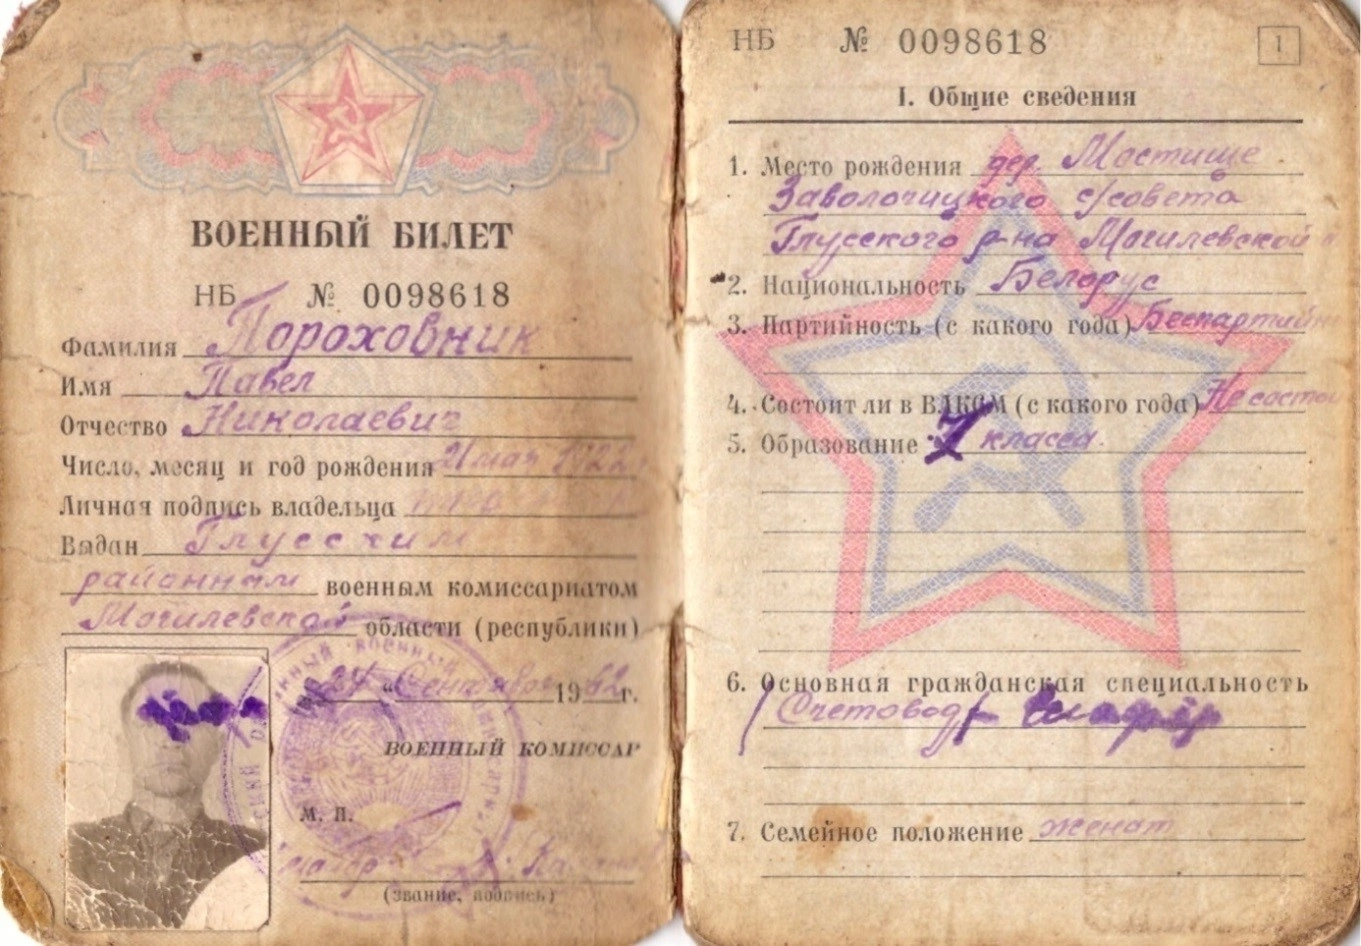 ВОЕННЫЙ БИЛЕТ
НБ № 0098618
Фамилия Пороховник
Имя Павел
Отчество Николаевич
Число, месяц и год рождения 21 мая 1922
Личная подпись владельца
Выдан Глусским
районным военным комиссариатом
Могилевской области (республики)
"24" Сентября 1962 г.
ВОЕННЫЙ КОМИССАР
М. П.
майор
(звание, подпись)
НБ № 0098618
1
I. Общие сведения
1. Место рождения дер. Мостище
Заволочицкого с/совета
Глусского р-на Могилевской
2. Национальность Белорус
3. Партийность (с какого года) Беспартийн
4. Состоит ли в ВЛКСМ (с какого года) Не состои
5. Образование 7 класса.
6. Основная гражданская специальность
Счетовод
7. Семейное положение женат